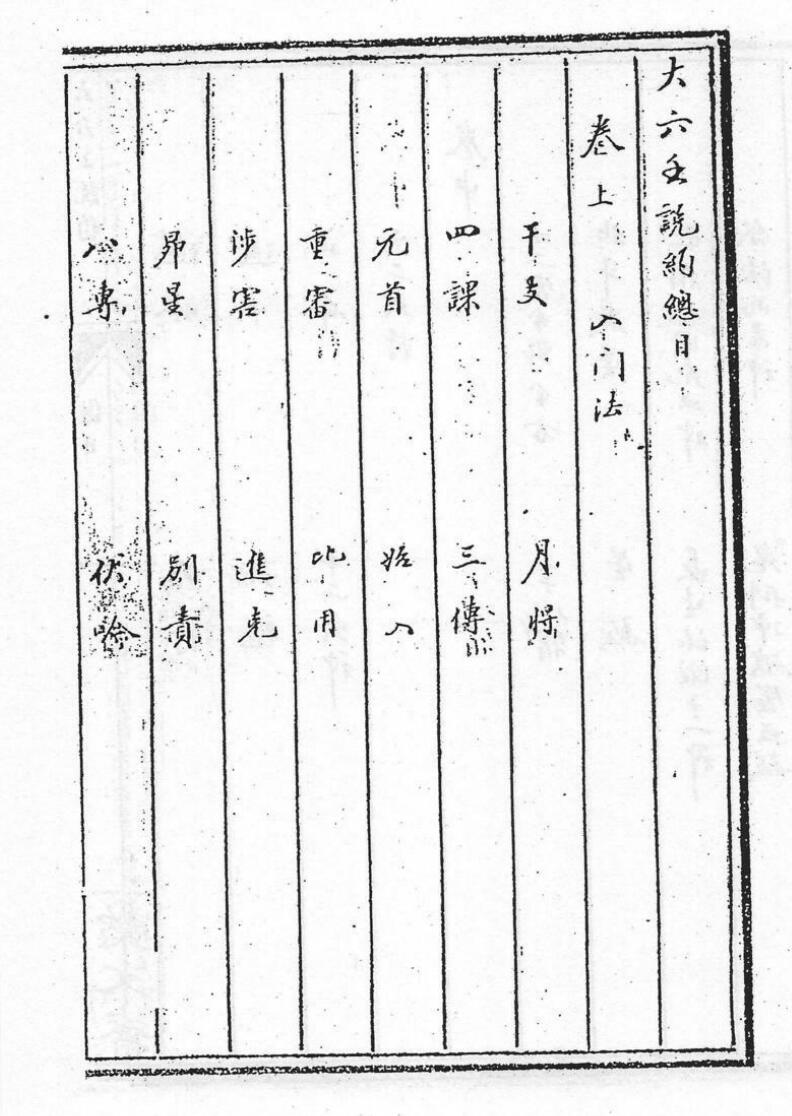 大六壬説約總目
卷上　入门法
干支　月将
四課　三傳
元首　始入
重審　比用
涉害　進克
昴星　别責
八專　伏吟